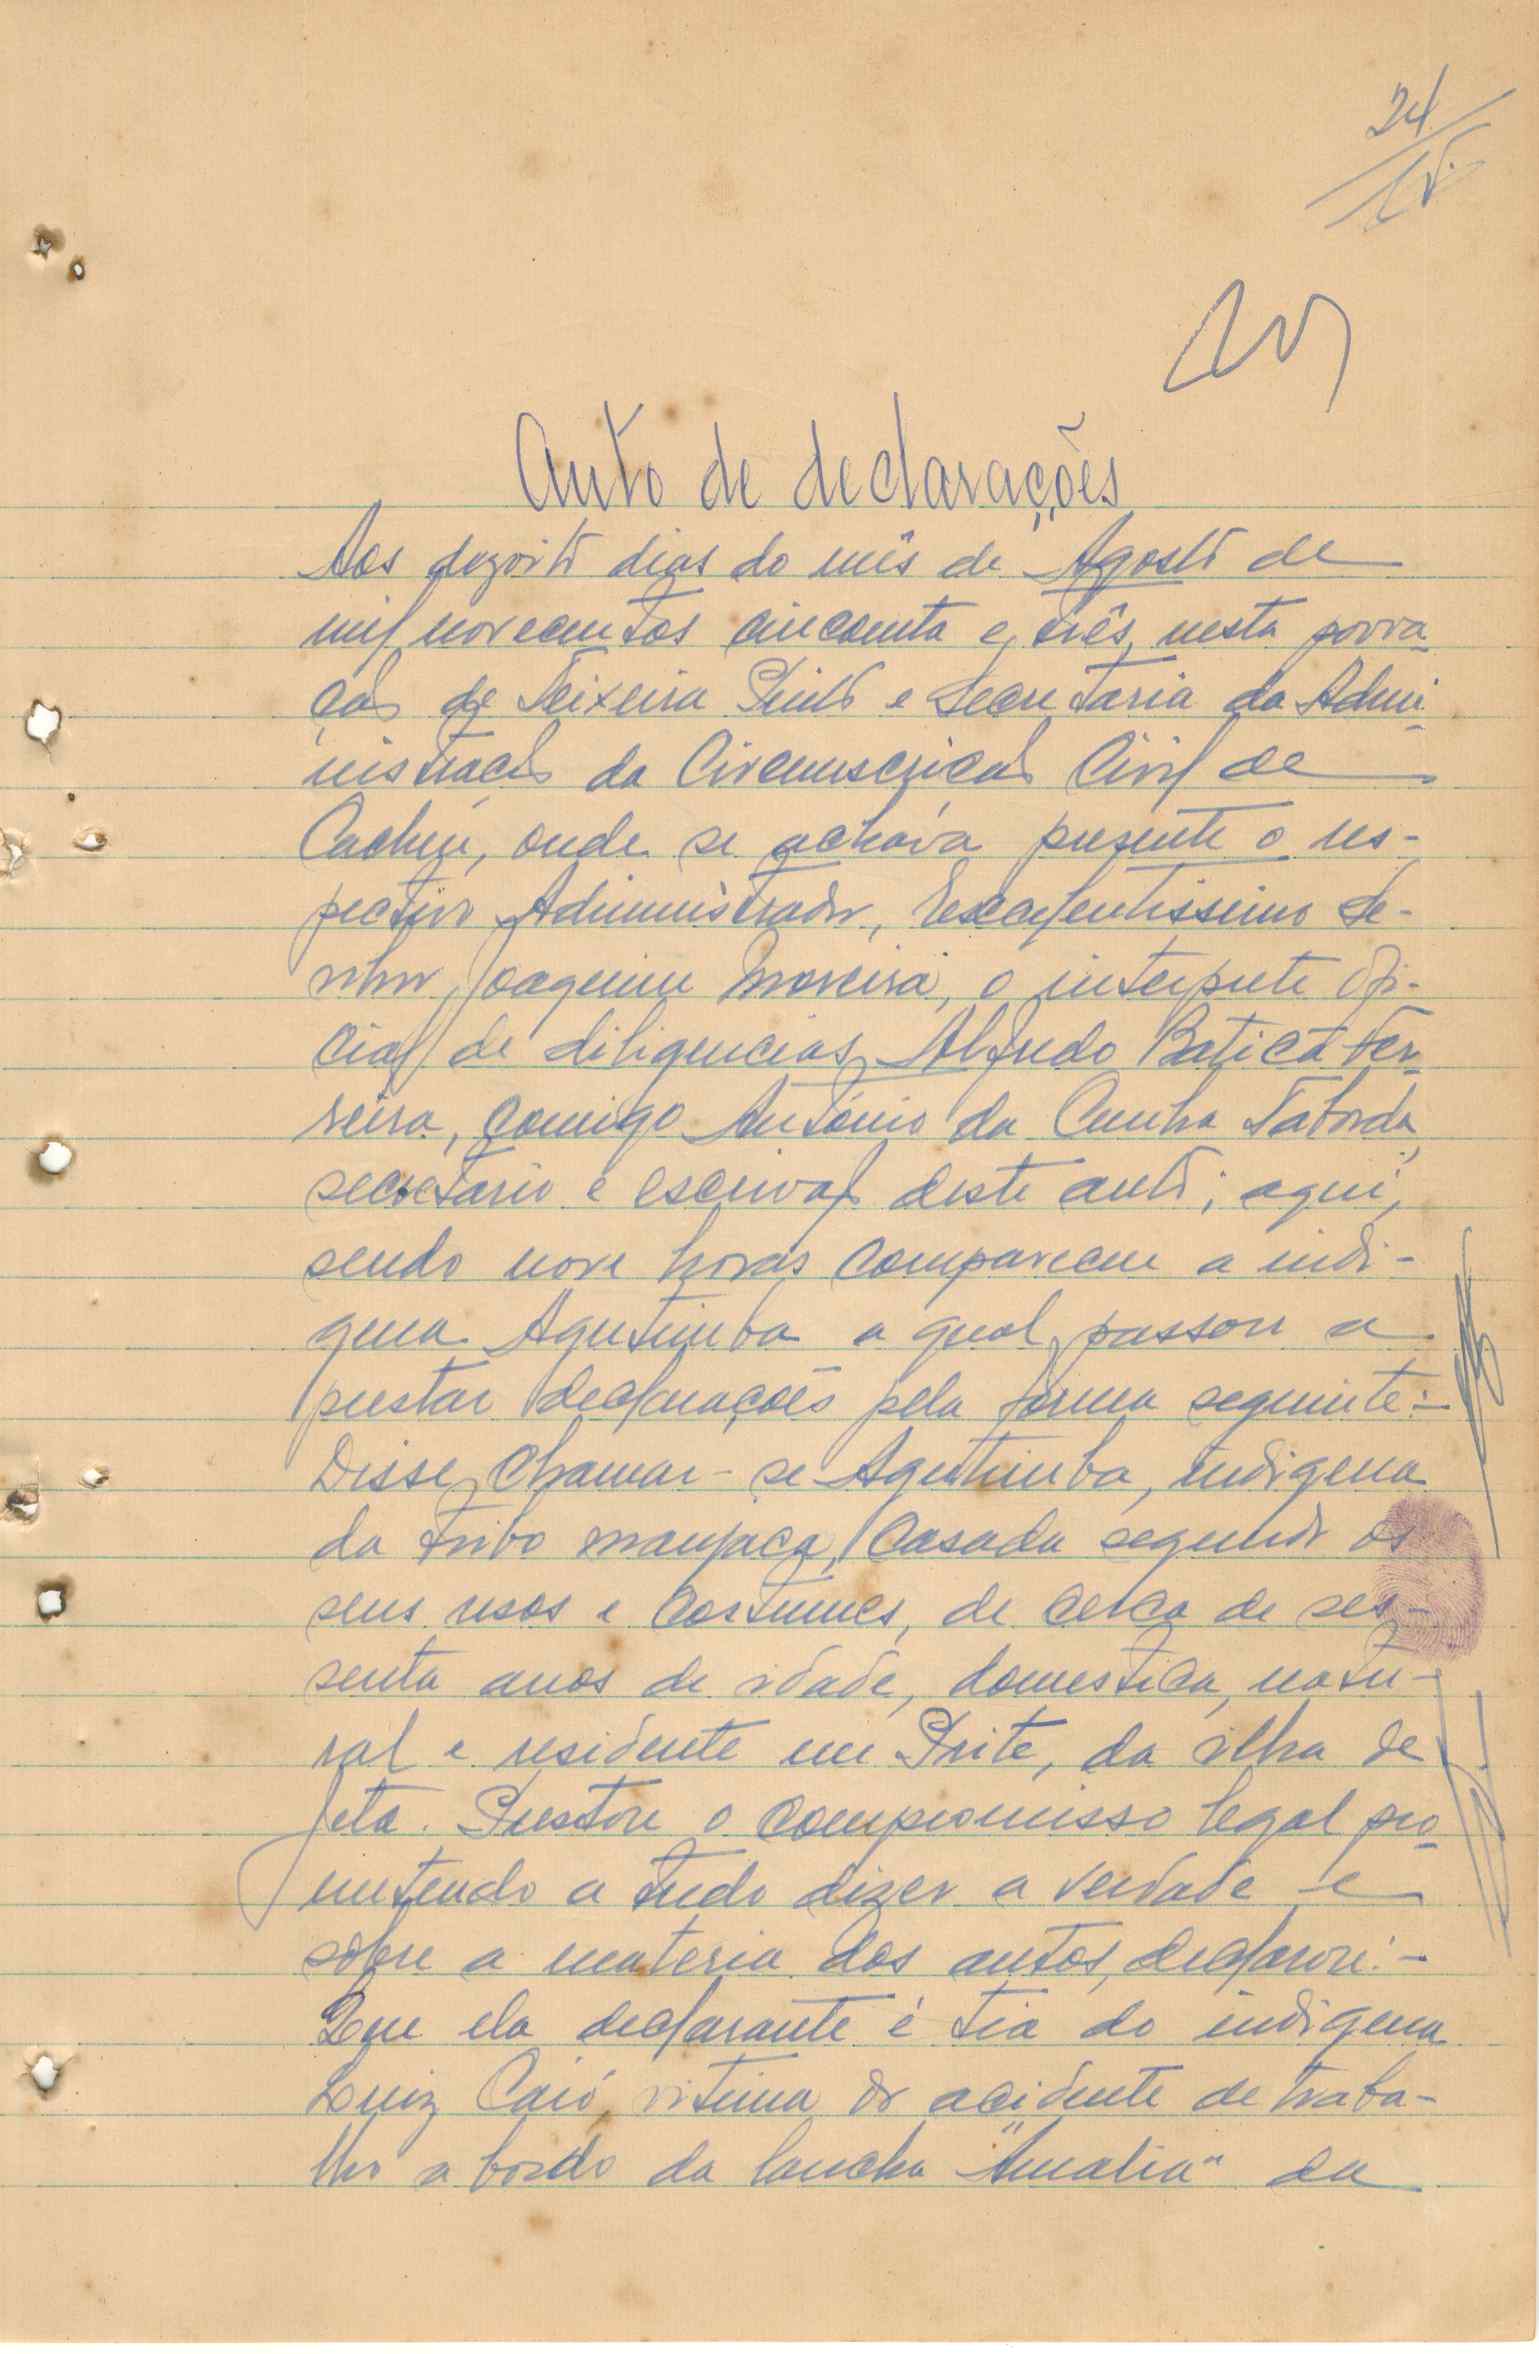 24
Auto de declarações
Aos dezoito dias do mês de Agosto de
mil novecentos cincoenta e três, nesta povoa-
ção de Teixeira Pinto e Secretaria da Admi-
nistração da Circunscrição Civil de
Cacheu, onde se achava presente o res-
pectivo Administrador, Excelentissimo Se-
nhor Joaquim Moreira, o interprete ofi-
cial de diligencias Alfredo Batica Fer-
reira, comigo António da Cunha Taborda,
secretario e escrivão deste auto; aqui,
sendo nove horas compareceu a indi-
gena Agutimba a qual passou a
prestar declarações pela forma seguinte:-
Disse chamar-se Agutimba, indigena
da tribo manjaca, casada segundo os
seus usos e costumes, de cerca de ses-
senta anos de idade, domestica, natu-
ral e residente em Prite, da ilha de
Jeta. Prestou o compromisso legal pro-
metendo a tudo dizer a verdade e
sobre a materia dos autos, declarou:-
Que ela declarante é tia do indigena
Luiz Caió, vitima do acidente de traba-
lho a bordo da lancha "Amalia" da